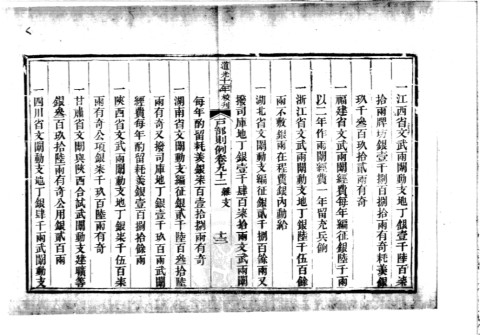 一江西省文武兩闈動支地丁銀壹千陸百柒
拾兩牌坊銀壹千貳百捌拾兩有奇耗羨銀
玖千叁百玖拾貳兩有奇
一福建省文武兩闈經費每年編征銀陸千兩
以二年作兩闈經費一年留充兵餉
一浙江省文武兩闈動支地丁銀陸千伍百餘
兩不敷銀兩在程費銀內動給
一湖北省文闈動支編征銀貳千捌百餘兩又
撥司庫地丁銀壹千肆百柒拾兩文武兩闈
每年酌留耗羨銀柒百壹拾捌兩有奇
戶部則例卷九十二
雜支
十二
一湖南省文闈動支編征銀貳千陸百叁拾陸
兩有奇又撥司庫地丁銀壹千玖百兩武闈
經費每年酌留耗羨銀壹百捌拾餘兩
一陝西省文武兩闈動支地丁銀柒千伍百柒
兩有奇公項銀柒千玖百陸兩有奇
一甘肅省文闈與陝西合試武闈動支建曠等
銀叁百玖拾陸兩有奇公用銀貳百兩
一四川省文闈動支地丁銀肆千兩武闈動支